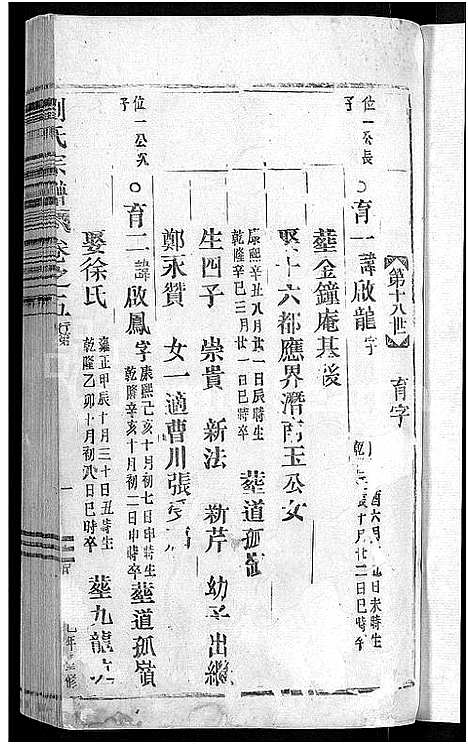 第十八世 育字
位一公長子
育一諱啟龍字
酉六月 日未時生
乾 辰十月廿二日巳時卒
葬金鐘庵基後
娶十六都應界潛 玉公女
康熙辛丑八月廿一日辰時生
乾隆辛巳三月廿一日巳時卒
葬道孤嶺
生四子 崇貴 新法 新芹 幼子出繼
鄭永贊 女一適曹川張
位一公次子
育二諱啟鳳字
康熙己亥十月初七日申時生
乾隆辛亥十月初二日申時卒
葬道孤嶺
娶徐氏
雍正甲辰十月三十日丑時生
乾隆乙卯十月初八日巳時卒
葬九龍
劉氏宗譜 卷之五 行第
一